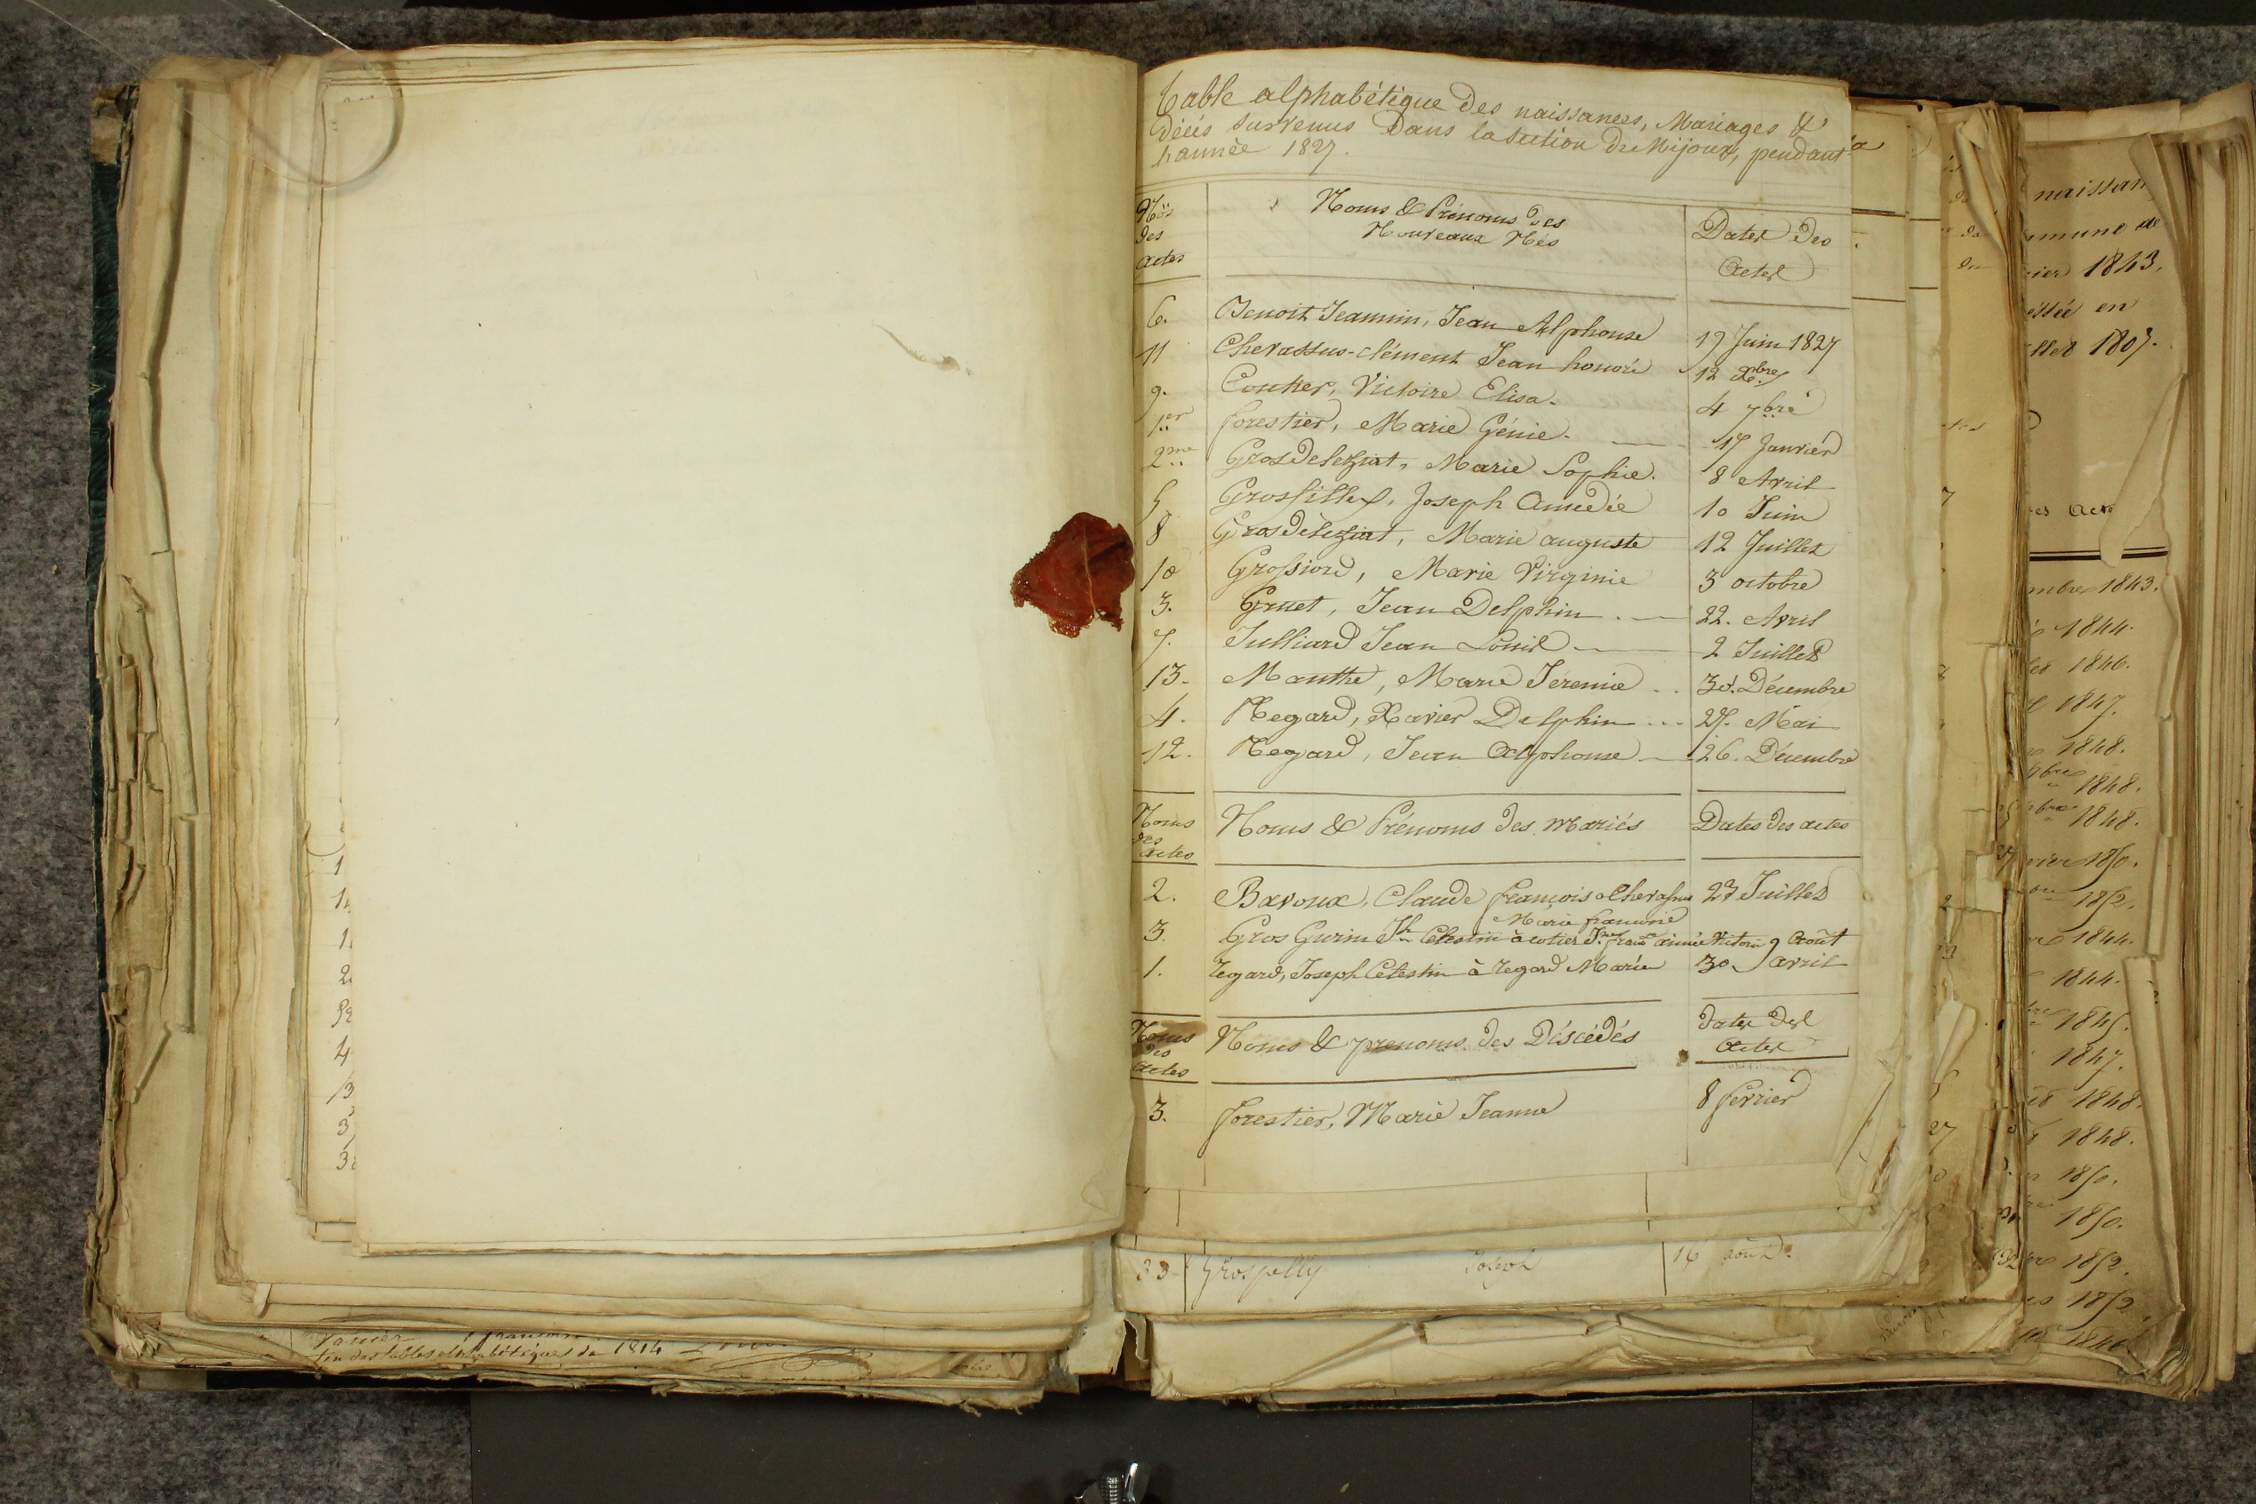 Table alphabétique des naissances, Mariages &
décès survenus dans la section de Mijoux, pendant
l'année 1827.
Nos des actes
Noms & Prénoms des Nouveaux Nés
Dates des Actes
6. Benoit Jeannin, Jean Alphonse 19 Juin 1827
11 Chevassus-clément Jean honoré 12 Xbre
9. Coutier, Victoire Elisa. 4 7bre
1er forestier, Marie Génie. 17 Janvier
2me Grosdeleziat, Marie Sophie. 8 Avril
5 Grosfillex, Joseph Amédée 10 Juin
8 Grosdeleziat, Marie auguste 12 Juillet
10 Grossiord, Marie Virginie 3 octobre
3. Gruet, Jean Delphin. 22. Avril
7. Julliard Jean Louis 2 Juillet
13. Manthe, Marie Jéremie 30. Décembre
4. Regard, Xavier Delphin 27. Mai
12. Regard, Jean Alphonse 26. Décembre
Noms des actes
Noms & Prénoms des Mariés
Dates des actes
2. Bavoux, Claude françois & Chevassus 23 Juillet
Marie
3. Gros Gurin Jh Célestin à 9 Août
1. regard, Joseph Célestin à regard Marie 30 avril
Noms des actes
Noms & prenoms des Déscédés
dates des Actes
3. forestier, Marie Jeanne 8 fevrier
33 Grospelly Joseph 16 août.
fin des tables alphabétiques de 1814
naissan
mune de
1843.
en
1807.
mbre 1843.
1844.
1846.
1847.
1848.
1848.
1848.
1850.
1852.
1844.
1844.
1845.
1847.
1848.
1848.
1850.
1850.
1852.
1852